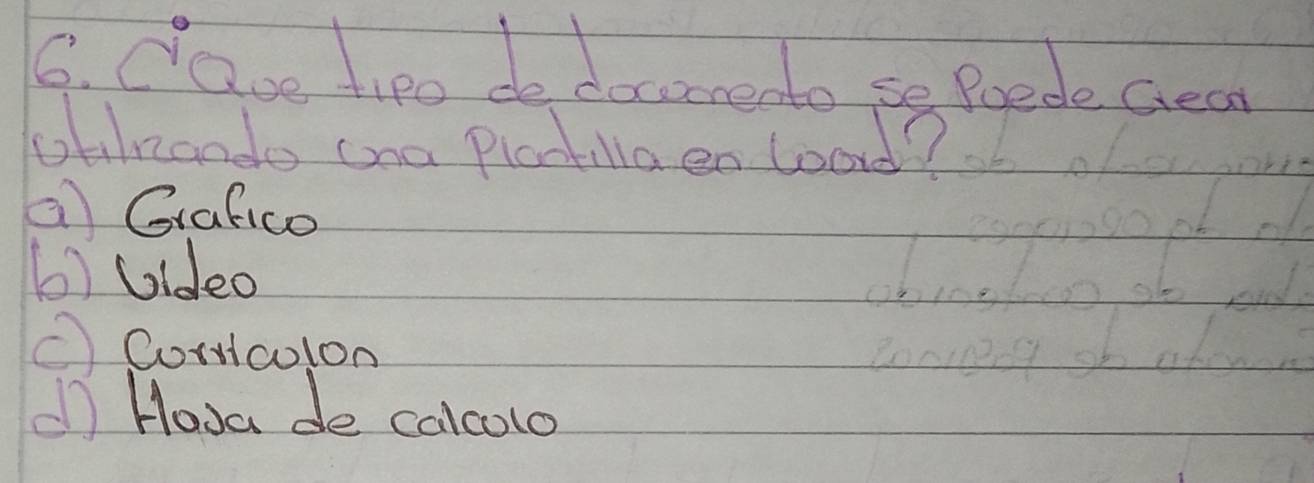 6. ¿Que tipo de documento se Puede Crear
utilizando una Plantilla en Word?
a) Grafico
b) Video
c) Curriculon
d) Hoja de calculo